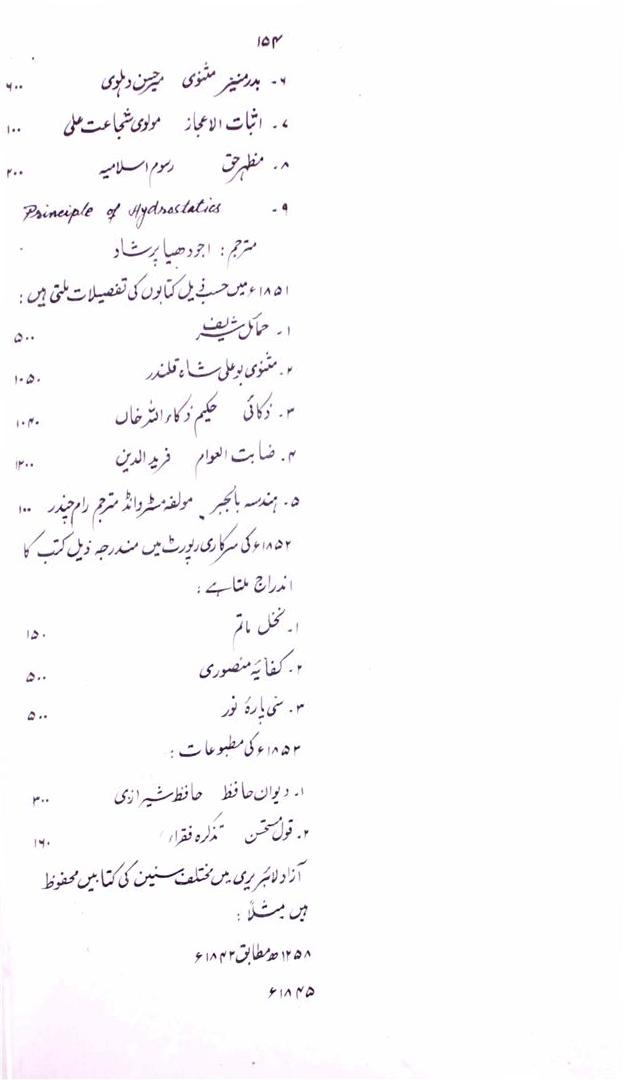 ۱۵۴
۶- بدر منیر مثنوی میر حسن دہلوی ۶۰۰
۷- اثبات الاعجاز مولوی شجاعت علی ۱۰۰
۸- مظہر حق رسوم اسلامیہ ۲۰۰
۹- Principle of Hydrostatics
مترجم : اجودھیا پرشاد
۱۸۵۱ء میں حسب ذیل کتابوں کی تفصیلات ملتی ہیں :
۱- حمائل شریف ۵۰۰
۲- مثنوی بوعلی شاہ قلندر ۱۰۵۰
۳- ذکائی حکیم ذکاء اللہ خاں ۱۰۴۰
۴- ضابت العوام فرید الدین ۱۲۰۰
۵- ہندسہ بالجبر مولفہ مسٹر وانڈ مترجم رام چندر ۱۰۰
۱۸۵۲ء کی سرکاری رپورٹ میں مندرجہ ذیل کتب کا
اندراج ملتا ہے :
۱- نخل ماتم ۱۵۰
۲- کفایۂ منصوری ۵۰۰
۳- سی پارۂ نور ۵۰۰
۱۸۵۳ء کی مطبوعات :
۱- دیوان حافظ حافظ شیرازی ۳۰۰
۲- قول مستحسن تذکرہ فقراء ۱۶۰
آزاد لائبریری میں مختلف سنین کی کتابیں محفوظ
ہیں مثلاً :
۱۲۵۸ھ مطابق ۱۸۴۲ء
۱۸۴۵ء